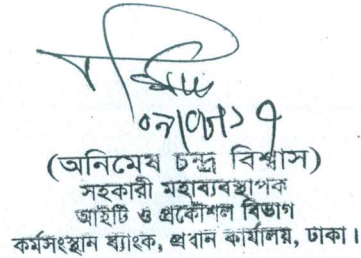 (অনিমেষ চন্দ্র বিশ্বাস)
সহকারী মহাব্যবস্থাপক
আইটি ও প্রকৌশল বিভাগ
কর্মসংস্থান ব্যাংক, প্রধান কার্যালয়, ঢাকা।